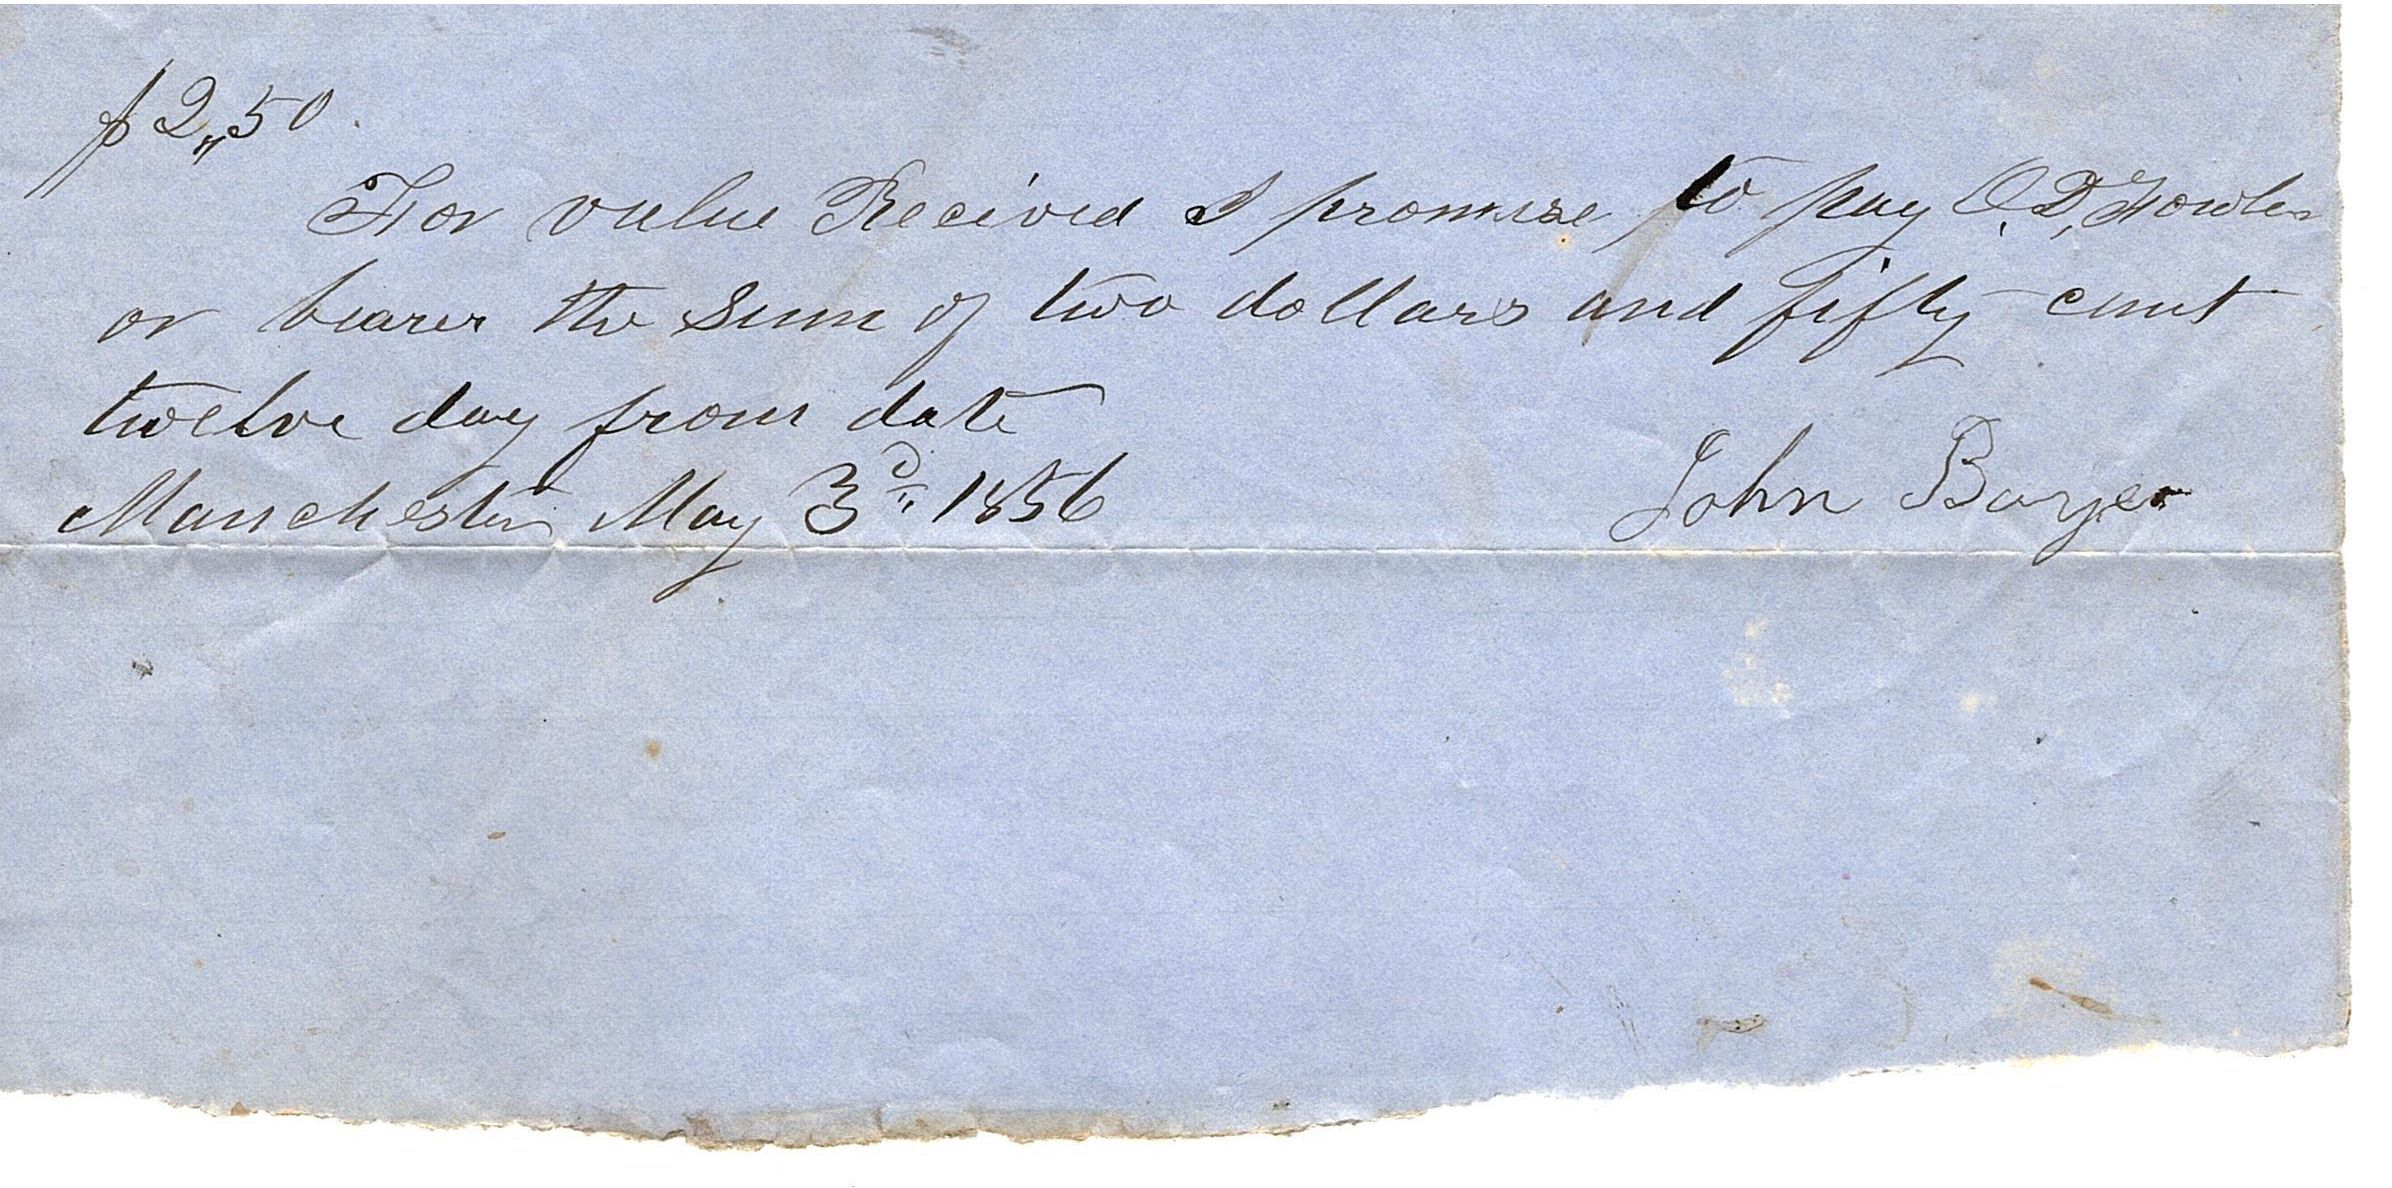 $2,,50.
For value Recived I promise to pay O, D, Fowler
or bearer the Sum of two dollars and fifty cent
twelve day from date
Manchester May 3d,, 1856
John Boyer